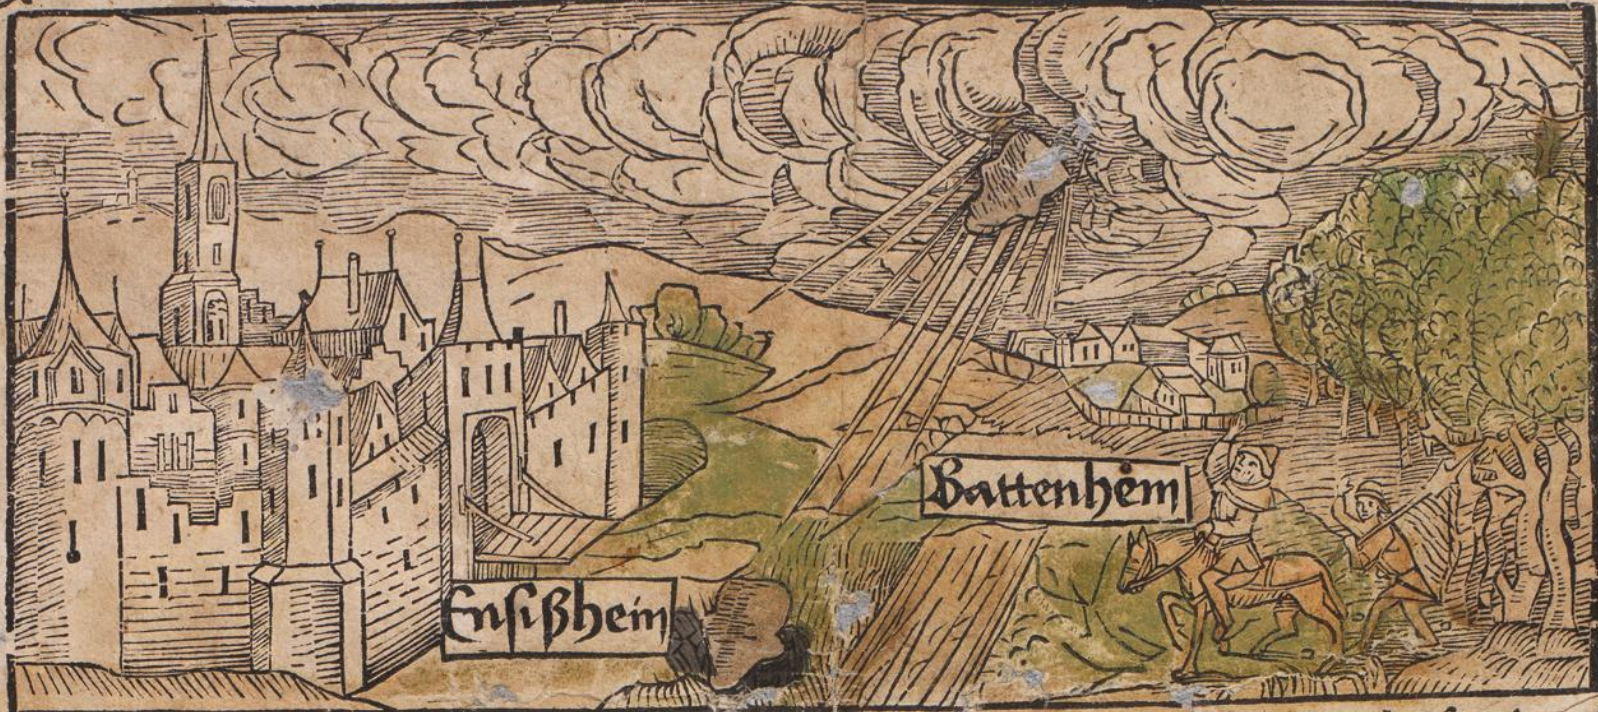 Battenhem
Ensißhein